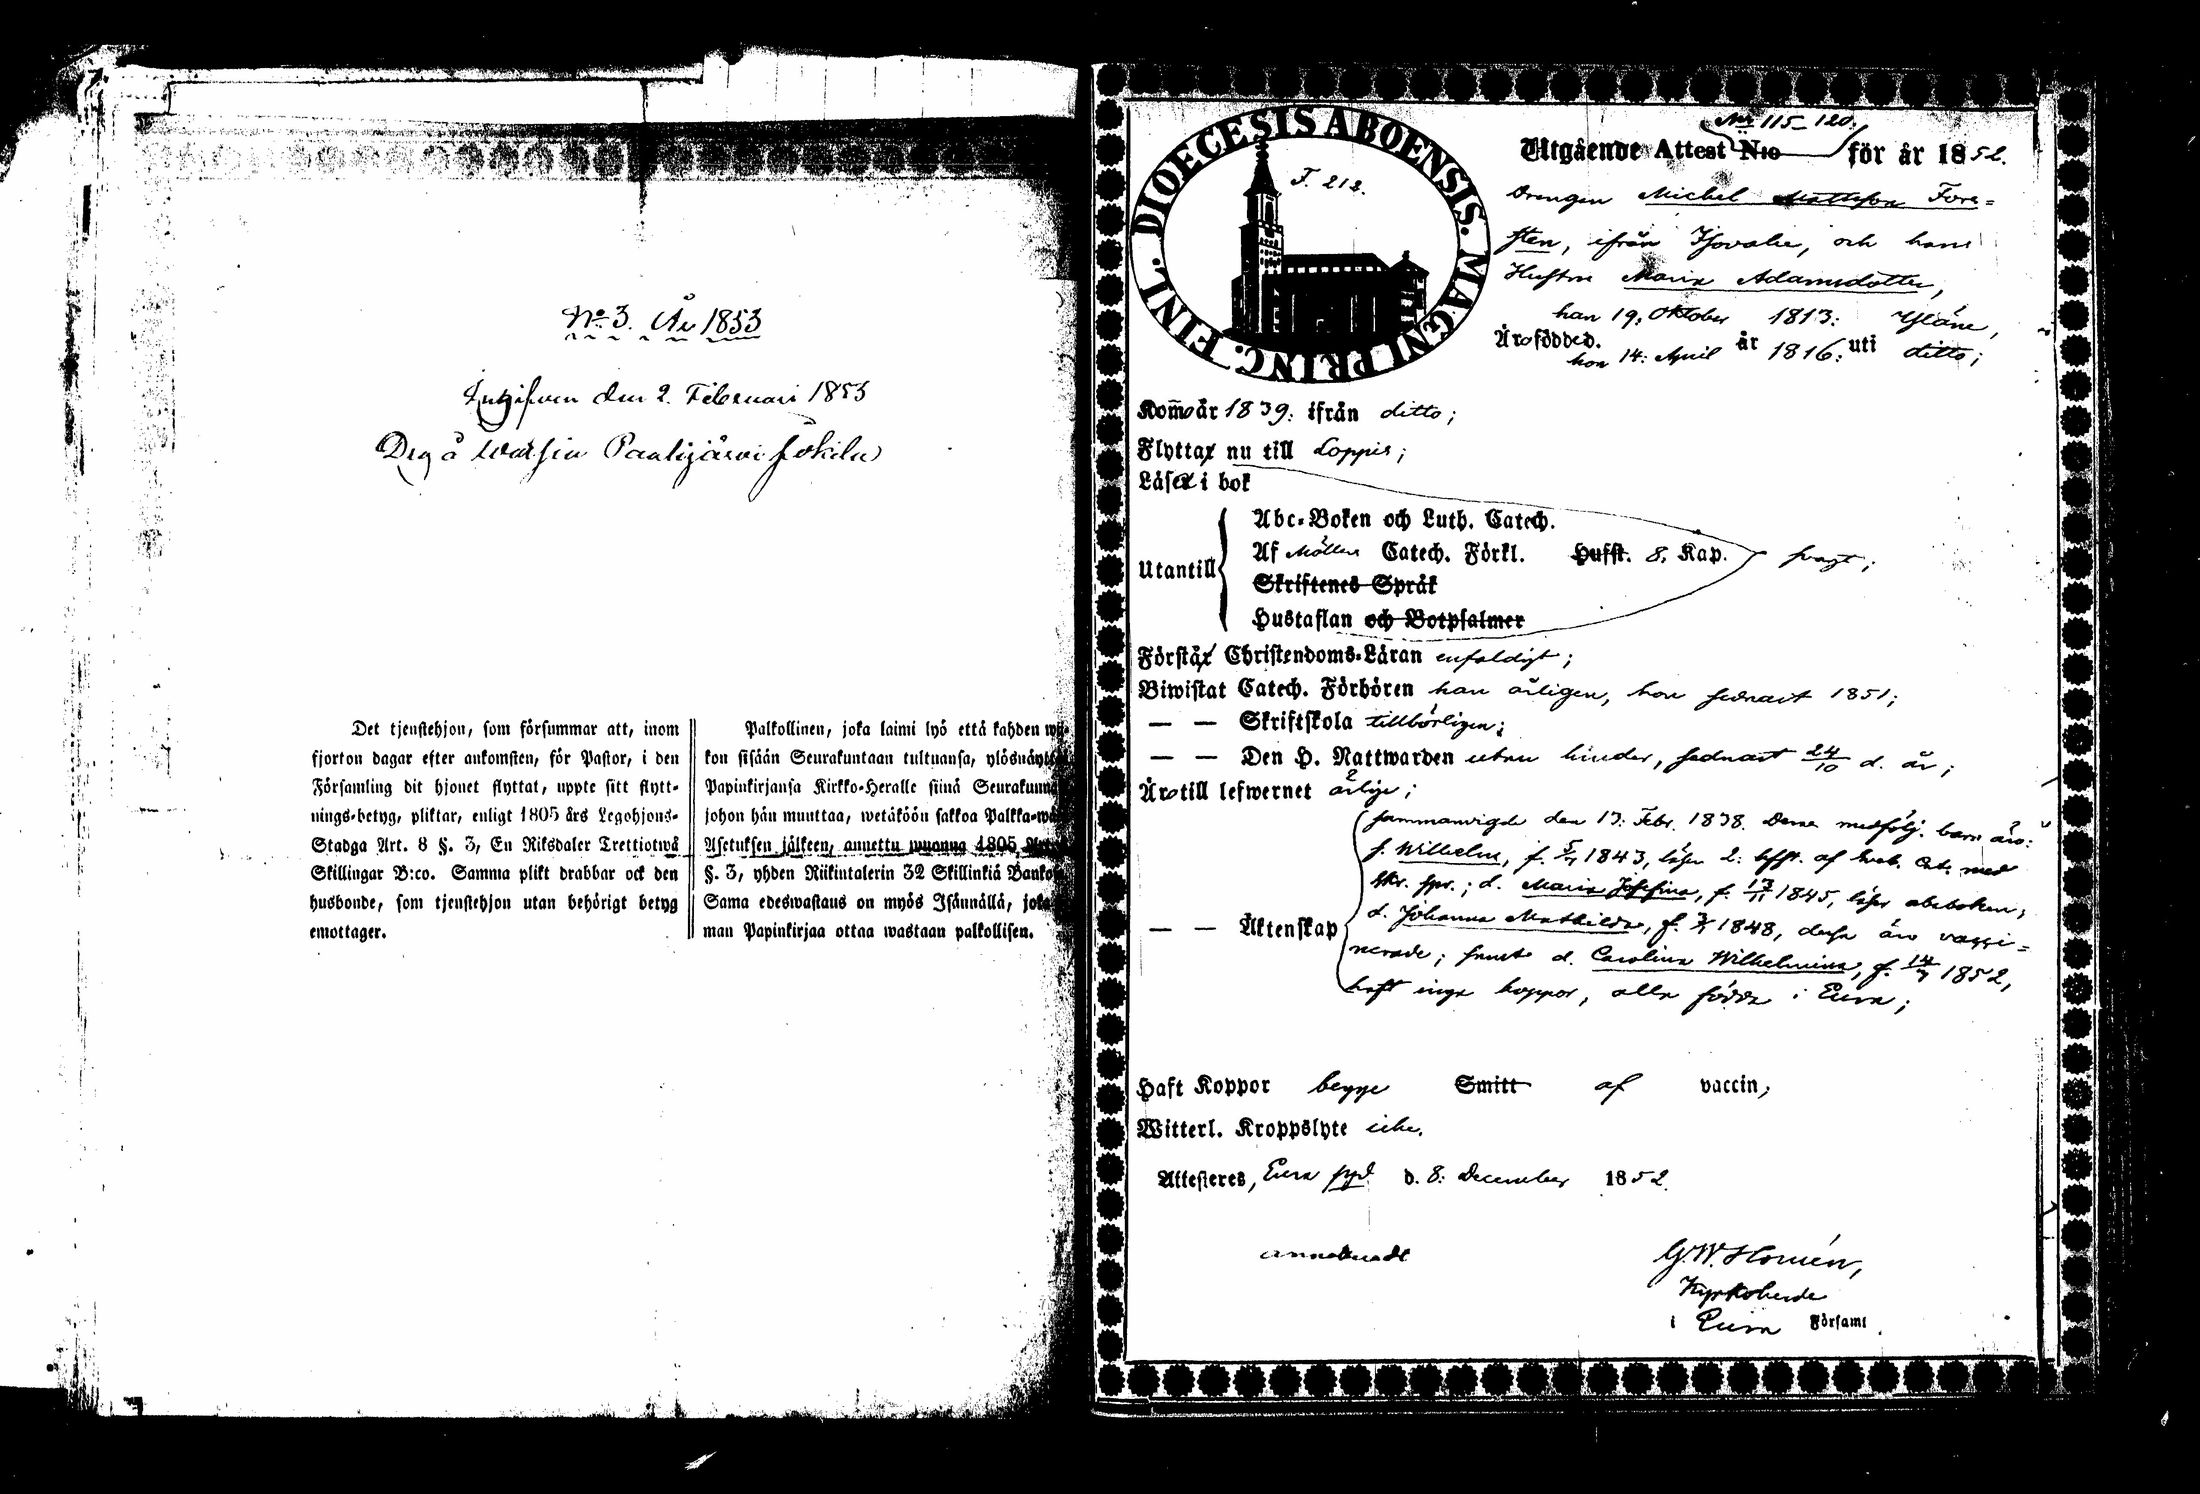 No 3. År 1853
Ingifven den 2. Februari 1853
Drg å
Det tjenstehjon, som försummar att, inom
fjorton dagar efter ankomsten, för Pastor, i den
Församling dit hjonet flyttat, uppte sitt flytt-
nings-betyg, pliktar, enligt 1805 års Legohjons-
Stadga Art. 8 §. 3, En Riksdaler Trettiotwå
Skillingar B:co. Samma plikt drabbar ock den
husbonde, som tjenstehjon utan behörigt betyg
emottager.
Palkollinen, joka laimi lyö että kahden
kon sisään Seurakuntaan tultuansa, ylösnäytt
Papinkirjansa Kirkko-Heralle siinä Seurakunna
johon hän muuttaa, wetäköön sakkoa Palkka-
Asetuksen jälkeen, annettu wuonna 1805,
§. 3, yhden Riikintalerin 32 Skillinkiä Banko
Sama edeswastaus on myös Isännällä, joka
man Papinkirjaa ottaa wastaan palkollisen.
DIOECESIS ABOENSIS. MAGNI PRINC. FINL.
F. 212.
No 115-120.
Utgående Attest N:o för år 1852.
Drengen Michel Mattsson Fore-
sten, ifrån och hans
Hustru Maria Adamsdotter,
han 19: Oktober 1813: Yläne,
Äro födde d. år uti
hon 14: April 1816: ditto;
Kommo år 1839: ifrån ditto;
Flytta nu till Loppis;
Läsa i bok
Abc-Boken och Luth. Catech.
Utantill Af Möllers Catech. Förkl. Hufst. 8. Kap. svagt;
Skriftenes Språk
Hustaflan och Botpsalmer
Förstå Christendoms-Läran enfaldigt;
Biwistat Catech. Förhören han årligen, hon sednast 1851;
— — Skriftskola tillbörligen;
— — Den H. Nattwarden utan hinder, sednast 24/10 d. år;
Äro till lefwernet ärlige;
sammanvigde den 13: Febr. 1838. Deras medfölj. barn äro:
s. Wilhelm, f. 1843, läser 2: hfst. af Cat. med
skr. spr.; d. Maria Josefina, f. 17/11 1845, läser abcboken;
— — Äktenskap d. Johanna Mathilda, f. 1848, dessa äro vacci-
nerade; samt d. Carolina Wilhelmina, f. 1852,
haft inga koppor, alla födda i Eura;
Haft Koppor begge Smitt af vaccin,
Witterl. Kroppslyte icke.
Attesteres, Eura d. 8: December 1852.
G. W. Homén,
Kyrkoherde
i Eura Församl